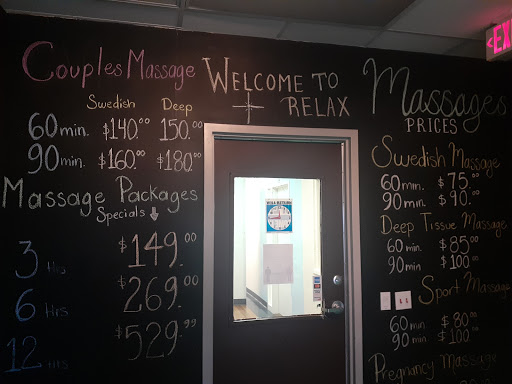 Couples Massage
Swedish Deep
60 min. $140.00 150.00
90 min. $160.00 $180.00
Massage Packages
Specials
3 Hrs $149.00
6 Hrs $269.00
12 HRS $529.99
WELCOME TO
RELAX
Massages
PRICES
Swedish Massage
60 min. $75.00
90 min. $90.00
Deep Tissue Massage
60 min. $85.00
90 min $100.00
Sport Massage
60 min. $80.00
90 min $100.00
Pregnancy Massage
WILL RETURN
EX